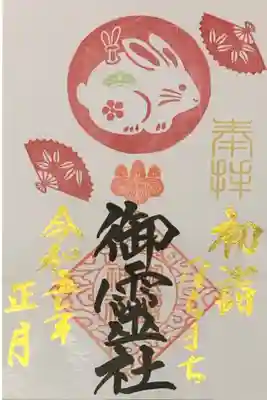 奉拝
初詣
御霊社
令和五年
正月